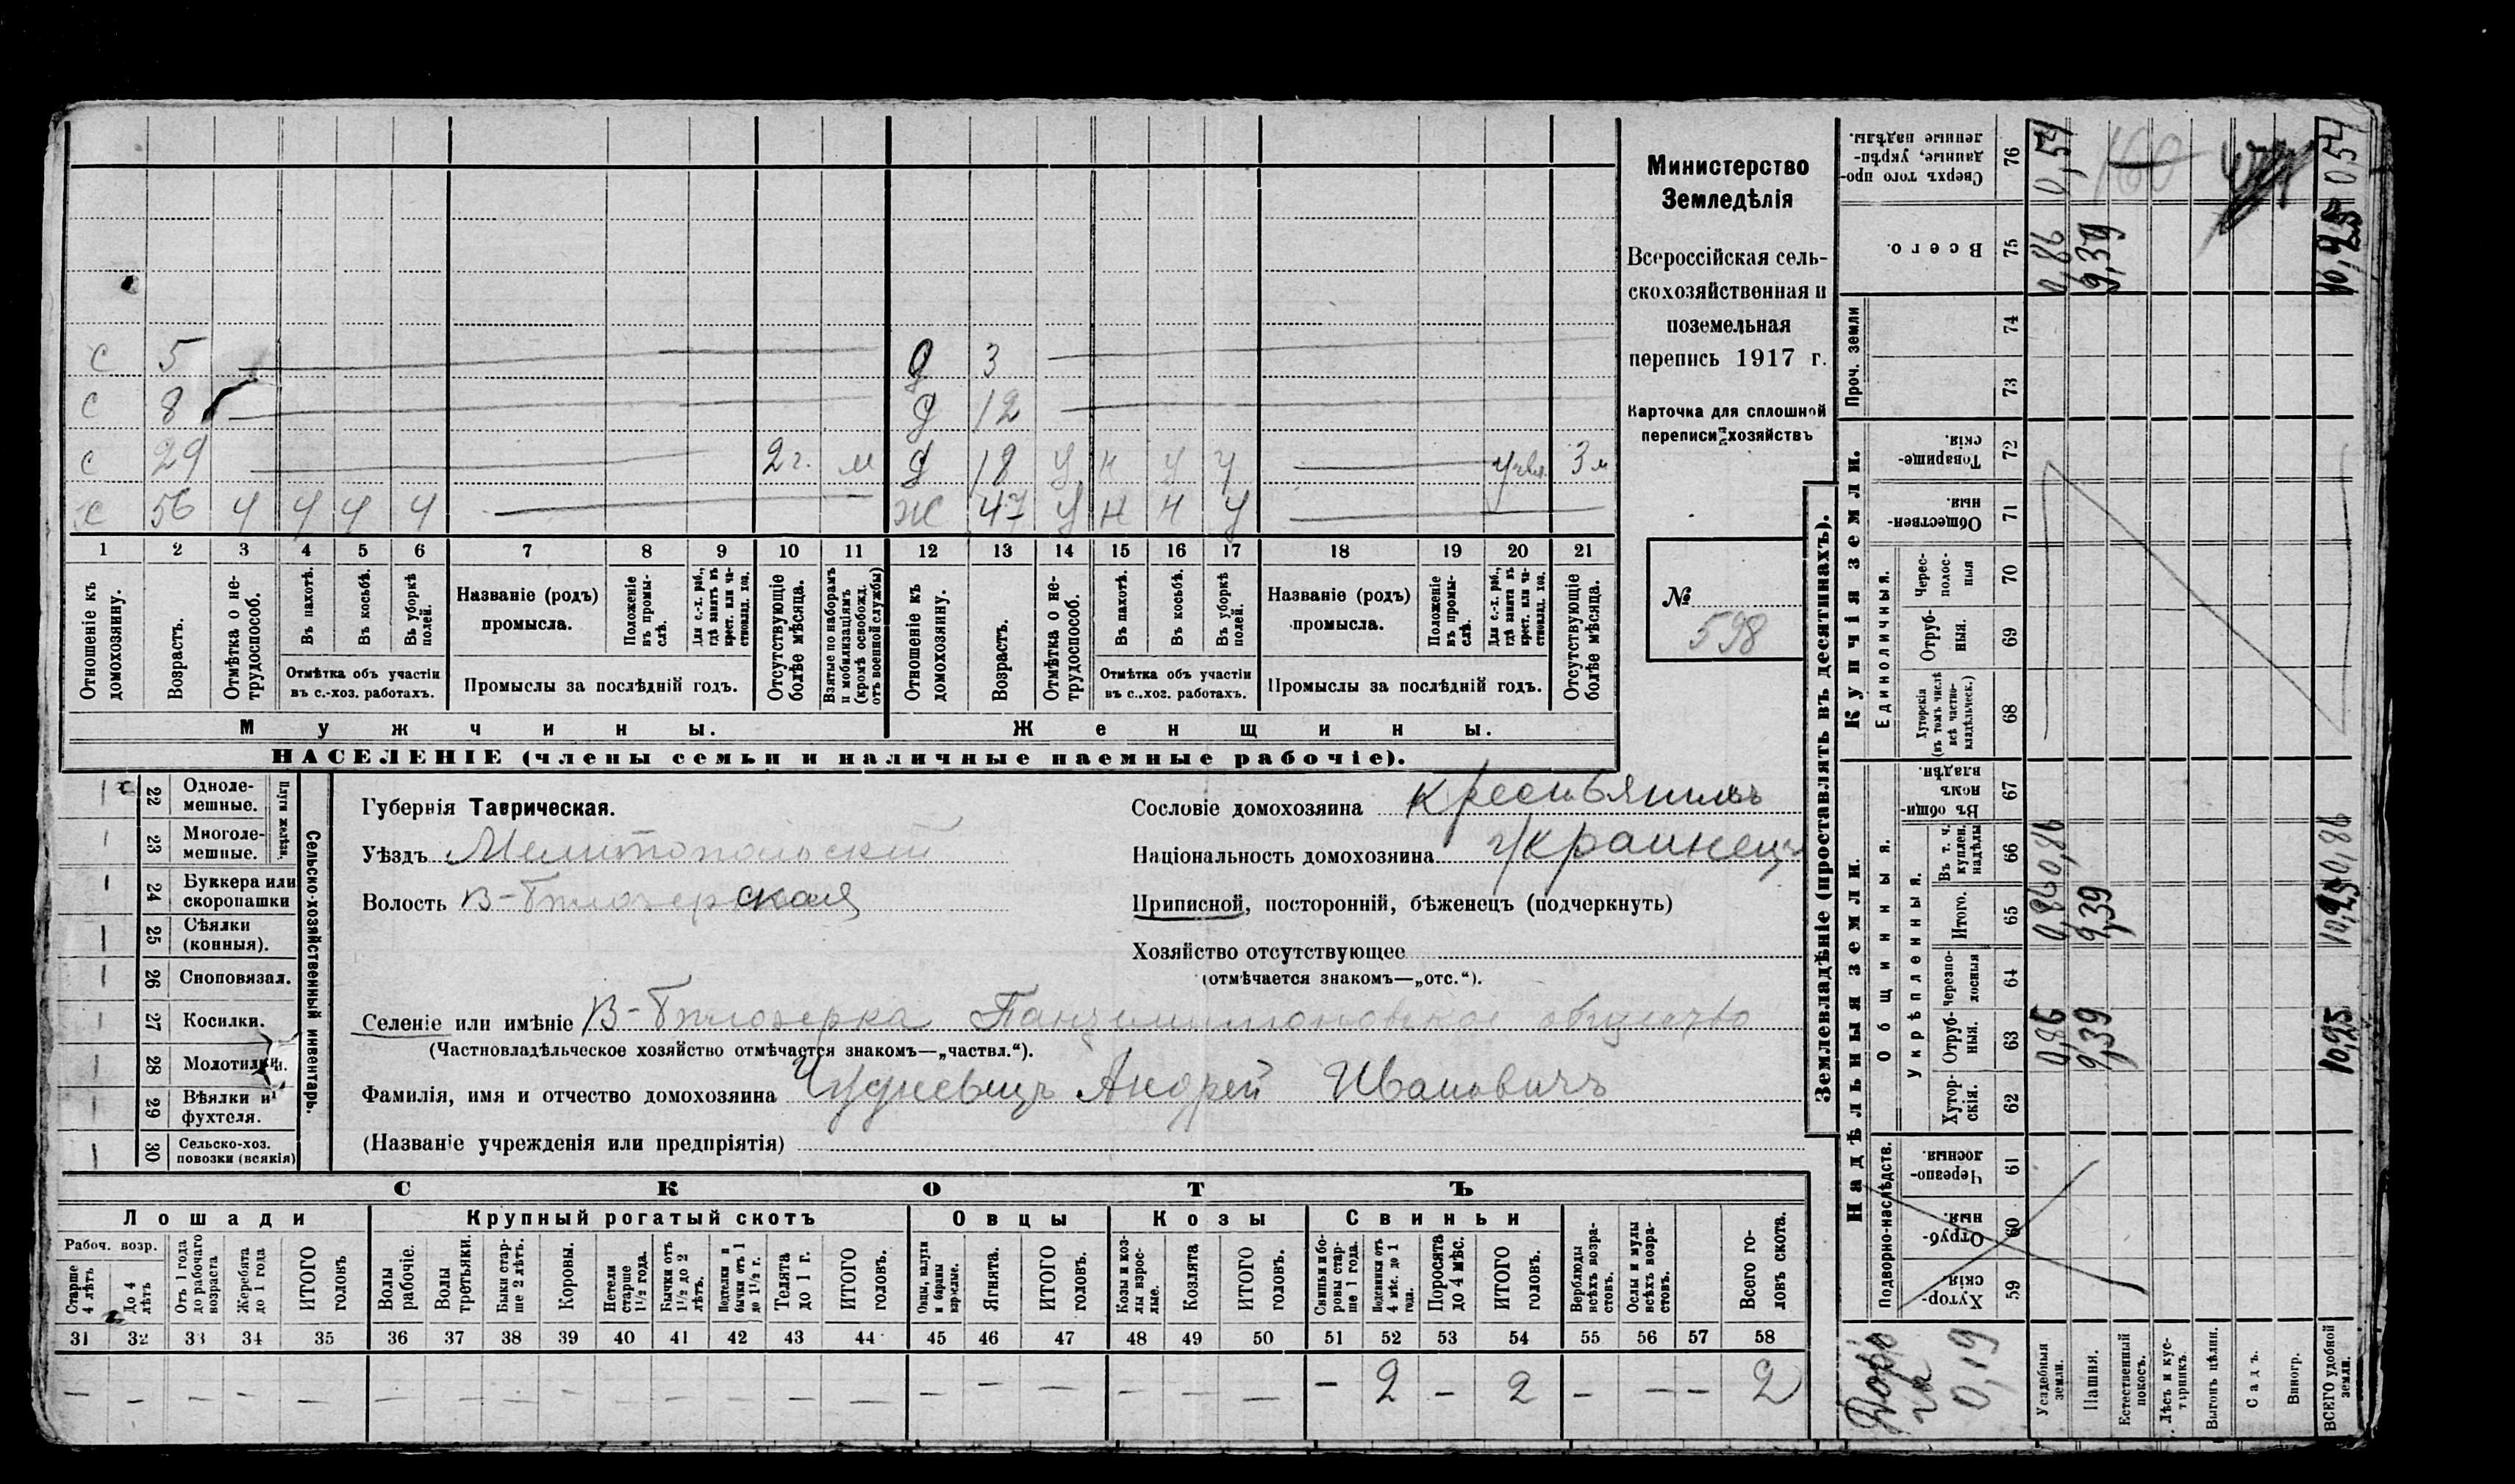 Министерство
Земледѣлія
Всероссійская сель-
скохозяйственная и
поземельная
перепись 1917 г.
Карточка для сплошной
переписи хозяйствъ
№
598
с 5 д 3
с 8 д 12
с 29 2 г. м д 18 у н у у 3 м
х 56 ч ч ч ч ж 47 у н н у
1 2 3 4 5 6 7 8 9 10 11 12 13 14 15 16 17 18 19 20 21
Отношеніе къ домохозяину.
Возрастъ.
Отмѣтка о не-трудоспособ.
Въ пахотѣ.
Въ косьбѣ.
Въ уборкѣ полей.
Отмѣтка объ участіи
въ с.-хоз. работахъ.
Названіе (родъ)
промысла.
Положеніе въ промы-слѣ.
Для с.-х. раб., гдѣ занятъ въ крест. или ча-стновлад. хоз.
Промыслы за послѣдній годъ.
Отсутствующіе болѣе мѣсяца.
Взятые по наборамъ и мобилизаціямъ (кромѣ освобожд. отъ военной службы)
Отношеніе къ домохозяину.
Возрастъ.
Отмѣтка о не-трудоспособ.
Въ пахотѣ.
Въ косьбѣ.
Въ уборкѣ полей.
Отмѣтка объ участіи
въ с.-хоз. работахъ.
Названіе (родъ)
промысла.
Положеніе въ промы-слѣ.
Для с.-х. раб., гдѣ занята въ крест. или ча-стновлад. хоз.
Промыслы за послѣдній годъ.
Отсутствующіе болѣе мѣсяца.
Мужчины. Женщины.
НАСЕЛЕНІЕ (члены семьи и наличные наемные рабочіе).
Сельско-хозяйственный инвентарь.
Плуги желѣзн.
22 Одноле-мешные.
23 Многоле-мешные.
24 Буккера или скоропашки
25 Сѣялки (конныя).
26 Сноповязал.
27 Косилки.
28 Молотилки.
29 Вѣялки и фухтеля.
30 Сельско-хоз. повозки (всякія)
Губернія Таврическая.
Уѣздъ Мелитопольскій
Волость В-Бѣлозерская
Сословіе домохозяина Крестьянинъ
Національность домохозяина Украинецъ
Приписной, посторонній, бѣженецъ (подчеркнуть)
Хозяйство отсутствующее
(отмѣчается знакомъ—„отс.“).
Селеніе или имѣніе В-Бѣлозерка общество
(Частновладѣльческое хозяйство отмѣчается знакомъ—„частвл.“).
Фамилія, имя и отчество домохозяина Андрей Ивановичъ
(Названіе учрежденія или предпріятія)
СКОТЪ
Лошади Крупный рогатый скотъ Овцы Козы Свиньи
Рабоч. возр.
Старше 4 лѣтъ
До 4 лѣтъ
Отъ 1 года до рабочаго возраста
Жеребята до 1 года
ИТОГО головъ
Волы рабочіе.
Волы третьяки.
Быки стар-ше 2 лѣтъ.
Коровы.
Нетели старше 1½ года.
Бычки отъ 1½ до 2 лѣтъ.
Подтелки и бычки отъ 1 до 1½ г.
Телята до 1 г.
ИТОГО головъ.
Овцы, валухи и бараны взрослые.
Ягнята.
ИТОГО головъ.
Козы и коз-лы взрос-лые.
Козлята
ИТОГО головъ.
Свиньи и бо-ровы стар-ше 1 года.
Подсвинки отъ 4 мѣс. до 1 года.
Поросята до 4 мѣс.
ИТОГО головъ.
Верблюды всѣхъ возра-стовъ.
Ослы и мулы всѣхъ возра-стовъ.
Всего го-ловъ скота.
31 32 33 34 35 36 37 38 39 40 41 42 43 44 45 46 47 48 49 50 51 52 53 54 55 56 57 58
— — — — — — — — — — — — — — — — — — — — — 2 — 2 — — — 2
Землевладѣніе (проставлять въ десятинахъ).
Надѣльныя земли. Купчія земли. Проч. земли
Подворно-наслѣдств.
Общинныя.
Укрѣпленныя.
Единоличныя.
Хутор-скія. 59
Отруб-ныя. 60
Черезпо-лосныя. 61
Хутор-скія. 62
Отруб-ныя. 63
Черезпо-лосныя 64
Итого. 65
Въ т. ч. куплен. надѣлы 66
Въ общи-номъ владѣн. 67
Хуторскія (въ томъ числѣ всѣ частно-владѣльческ.) 68
Отруб-ныя. 69
Черес-полос-ныя 70
Обществен-ныя. 71
Товарище-скія. 72
73
74
Всего. 75
Сверхъ того про-данные, укрѣп-ленные надѣлы. 76
0,19
Усадебныя земли. 0,86 0,86 0,86 0,86 0,54
Пашня. 9,39 9,39 9,39
Естественный покосъ. 160
Лѣсъ и кус-тарникъ.
Выгонъ цѣлин.
Садъ.
Виногр.
ВСЕГО удобной земли. 10,25 10,25 0,86 10,25 0 54